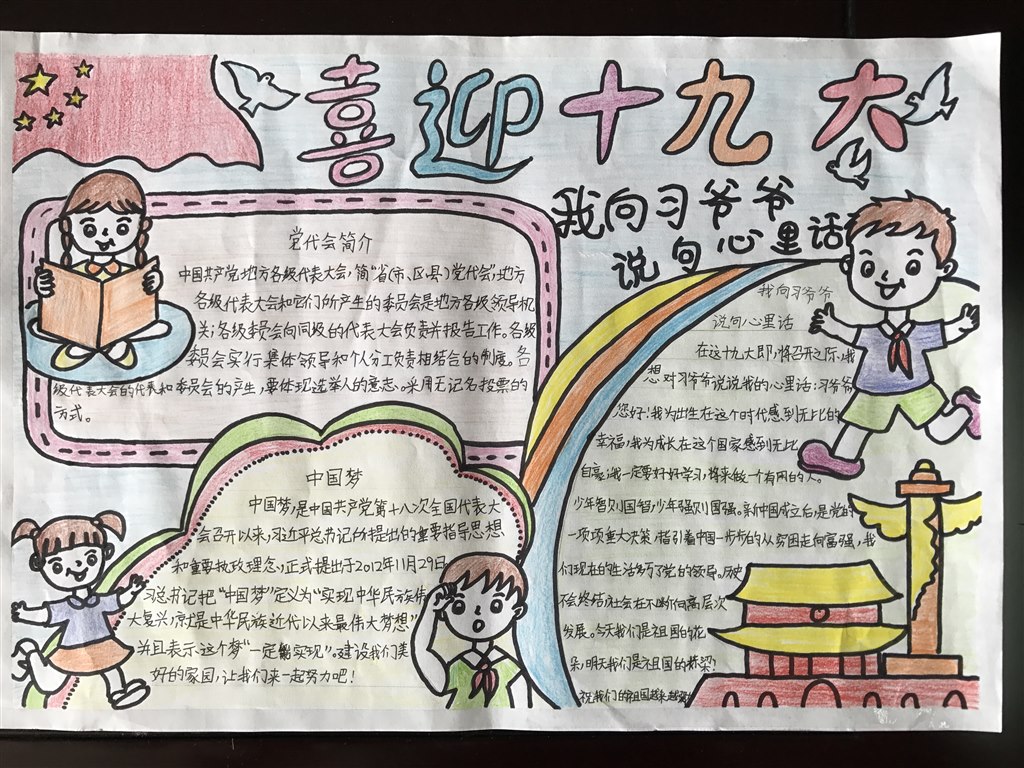 喜迎十九大
我向习爷爷
说句心里话
党代会简介
中国共产党地方各级代表大会,简"省(市、区、县)党代会",地方
各级代表大会和它们所产生的委员会是地方各级领导机
关,各级委员会向同级的代表大会负责并报告工作。各级
委员会实行集体领导和个人分工负责相结合的制度。各
级代表大会的代表和委员会的产生,要体现选举人的意志。采用无记名投票的
方式。
中国梦
中国梦,是中国共产党第十八次全国代表大
会召开以来,习近平总书记所提出的重要指导思想
和重要执政理念,正式提出于2012年11月29日
习总书记把"中国梦"定义为"实现中华民族伟
大复兴,就是中华民族近代以来最伟大梦想"
并且表示这个梦"一定能实现"。建设我们美
好的家园,让我们来一起努力吧!
我向习爷爷
说句心里话
在这十九大即将召开之际,我
想对习爷爷说说我的心里话:习爷爷
您好!我为出生在这个时代感到无比的
幸福,我为成长在这个国家感到无比
自豪,我一定要好好学习,将来做一个有用的人。
少年智则国智,少年强则国强。新中国成立后,是党的
一项项重大决策,指引着中国一步步的从贫困走向富强,我
们现在的生活多亏了党的领导。历史
不会终结,社会在不断向高层次
发展。今天我们是祖国的花
朵,明天我们是祖国的栋梁!
祝我们的祖国越来越